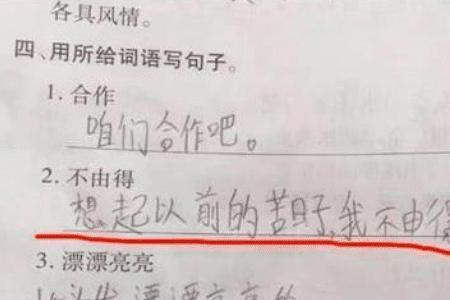 各具风情。
四、用所给词语写句子。
1. 合作
咱们合作吧。
2. 不由得
想起以前的苦日子,我不由得
3. 漂漂亮亮